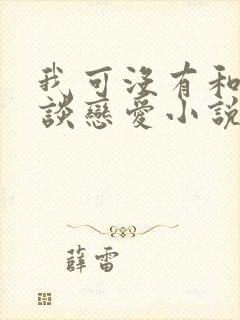 我可沒有和
談戀愛小說
薛雷